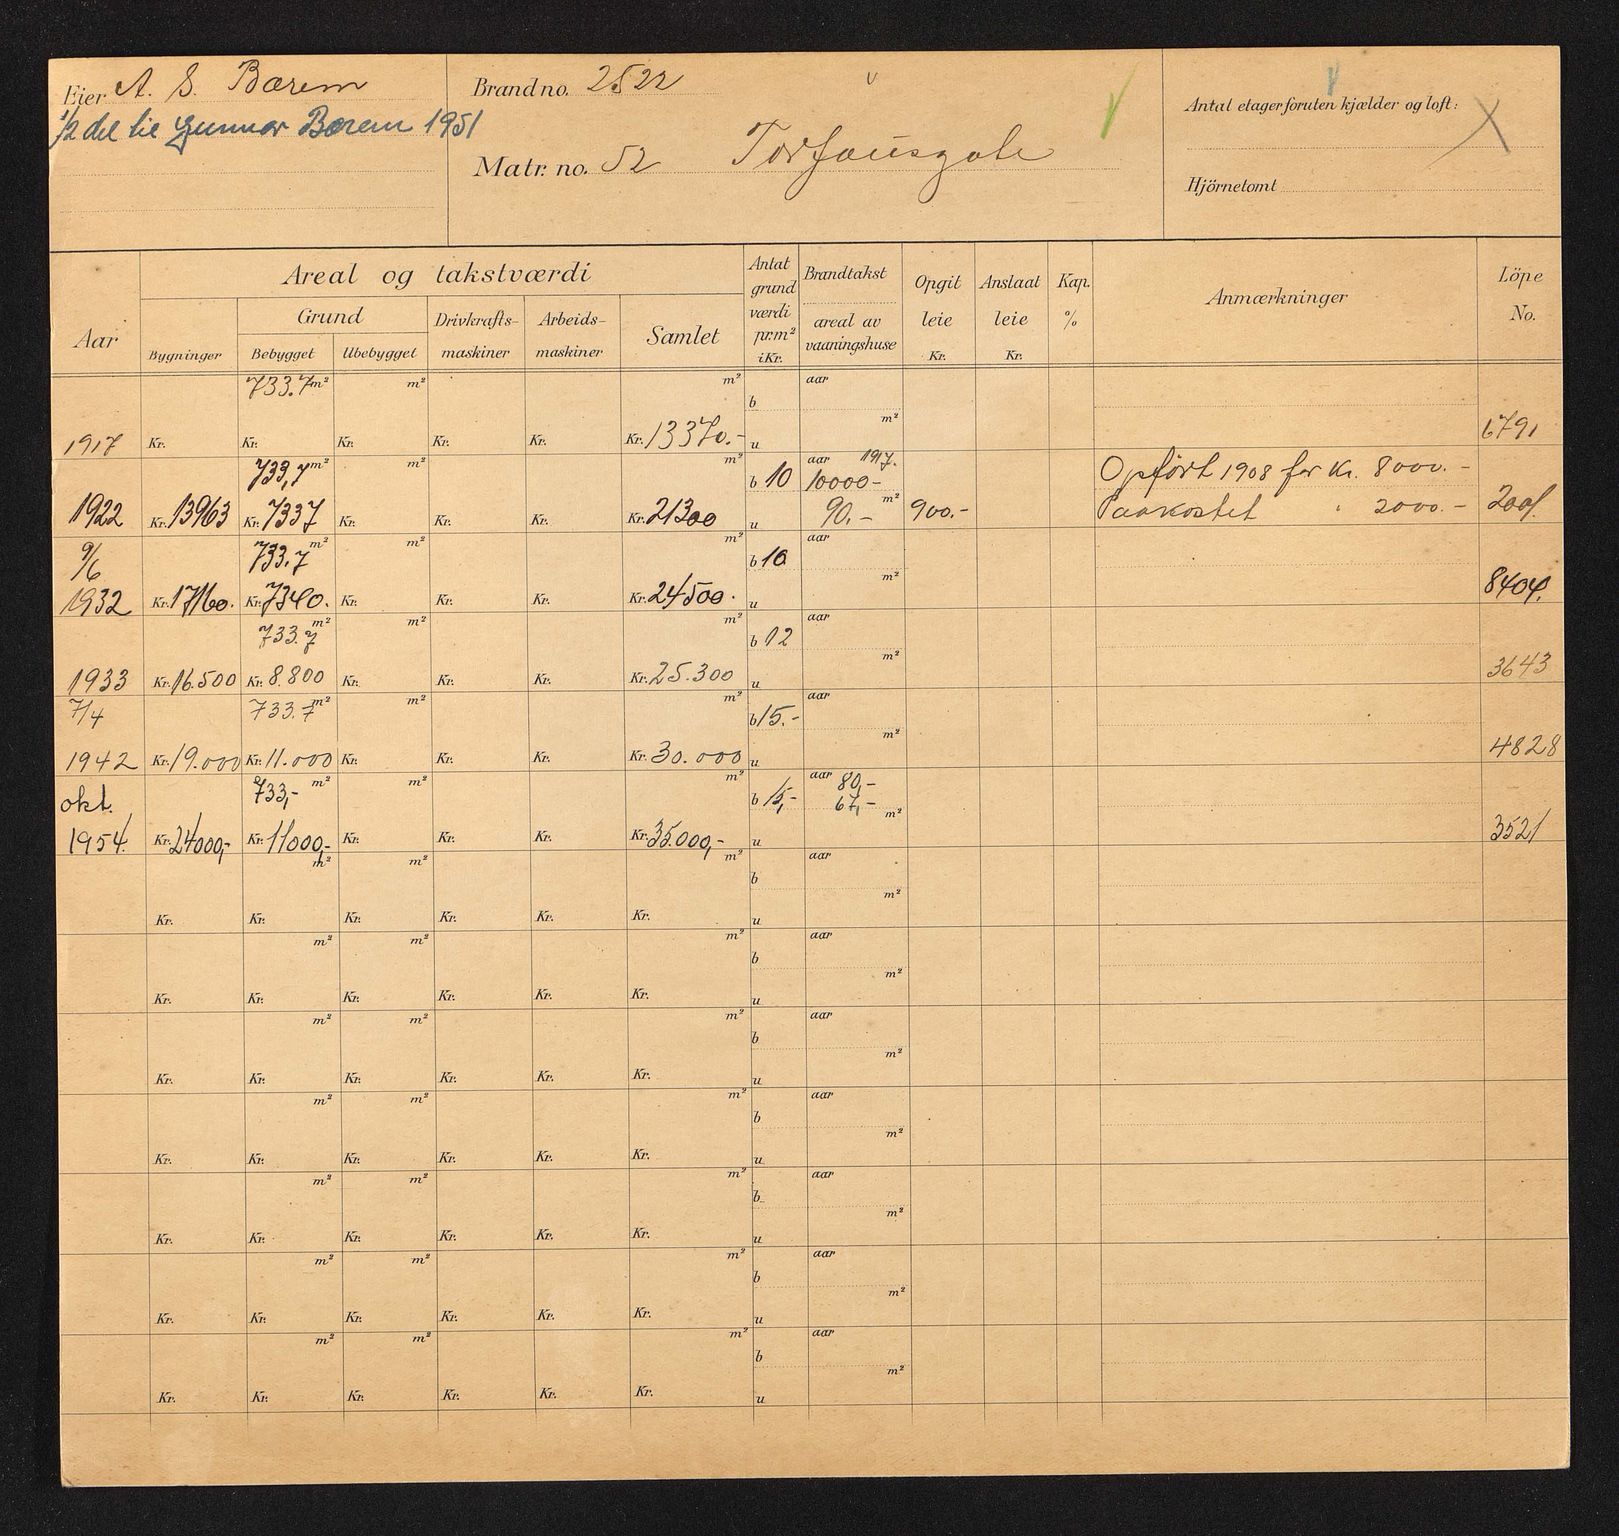 Eier A. S. Bærem
1/2 del til Gunnar Bærem 1951
Brand no. 2522
Matr. no. 52 Torfæusgate
Antal etager foruten kjælder og loft:
Hjörnetomt
Aar
Areal og takstværdi
Bygninger
Grund
Bebygget Ubebygget
Drivkrafts-
maskiner
Arbeids-
maskiner
Samlet
Antat
grund
værdi
pr. m²
i Kr.
Brandtakst
areal av
vaaningshuse
Opgit
leie
Kr.
Anslaat
leie
Kr.
Kap.
%
Anmærkninger
Löpe
No.
733.7 m² m² m² aar
b
m²
1917 Kr. Kr. Kr. Kr. Kr. Kr. 13370.- u 6791
733,7 m² m² m² aar 1917.
b 10 10000- Opført 1908 for Kr. 8000.-
1922 Kr. 13963 Kr. 7337 Kr. Kr. Kr. Kr. 21300 u 90.- m² 900.- Paakostet " 2000.- 2001.
9/6 733.7 m² m² m² aar
b 10
m²
1932 Kr. 17160. Kr. 7340. Kr. Kr. Kr. Kr. 24500. u 8404.
733.7 m² m² m² aar
b 12
m²
1933 Kr. 16.500 Kr. 8.800 Kr. Kr. Kr. Kr. 25.300 u 3643
7/4 733.7 m² m² m² aar
b 15.-
m²
1942 Kr. 19.000 Kr. 11.000 Kr. Kr. Kr. Kr. 30.000 u 4828
okt. 733,- m² m² m² aar 80,-
b 15,- 67,- m²
1954. Kr. 24000,- Kr. 11000,- Kr. Kr. Kr. Kr. 35.000,- u 3521
m² m² m² aar
b
m²
Kr. Kr. Kr. Kr. Kr. Kr. u
m² m² m² aar
b
m²
Kr. Kr. Kr. Kr. Kr. Kr. u
m² m² m² aar
b
m²
Kr. Kr. Kr. Kr. Kr. Kr. u
m² m² m² aar
b
m²
Kr. Kr. Kr. Kr. Kr. Kr. u
m² m² m² aar
b
m²
Kr. Kr. Kr. Kr. Kr. Kr. u
m² m² m² aar
b
m²
Kr. Kr. Kr. Kr. Kr. Kr. u
m² m² m² aar
b
m²
Kr. Kr. Kr. Kr. Kr. Kr. u